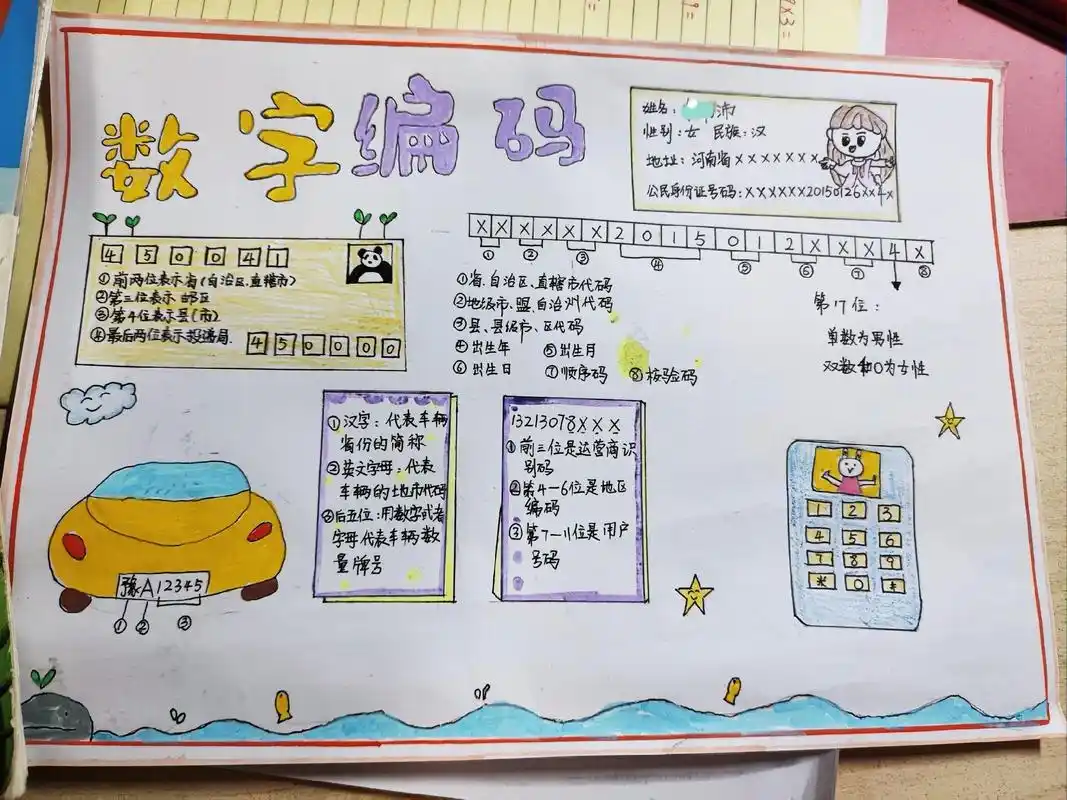 数字编码
姓名: 沛
性别:女 民族:汉
地址:河南省×××××××
公民身份证号码:××××××20150126××4×
4 5 0 0 4 1
①前两位表示省(自治区.直辖市)
②第三位表示邮区
③第4位表示县(市)
④最后两位表示投递局.
4 5 0 0 0 0
X X X X X X 2 0 1 5 0 1 2 X X X 4 X
① ② ③ ④ ⑤ ⑥ ⑦ ⑧
①省.自治区.直辖市代码
②地级市、盟.自治州代码
③县、县级市、区代码
④出生年 ⑤出生月
⑥出生日 ⑦顺序码 ⑧校验码
第17位:
单数为男性
双数和0为女性
①汉字:代表车辆
省份的简称
②英文字母:代表
车辆的地市代码
③后五位:用数字或者
字母代表车辆数
量牌号
豫A12345
① ② ③
13213078XXX
①前三位是运营商识
别码
②第4—6位是地区
编码
③第7—11位是用户
号码
1 2 3
4 5 6
7 8 9
* 0 #